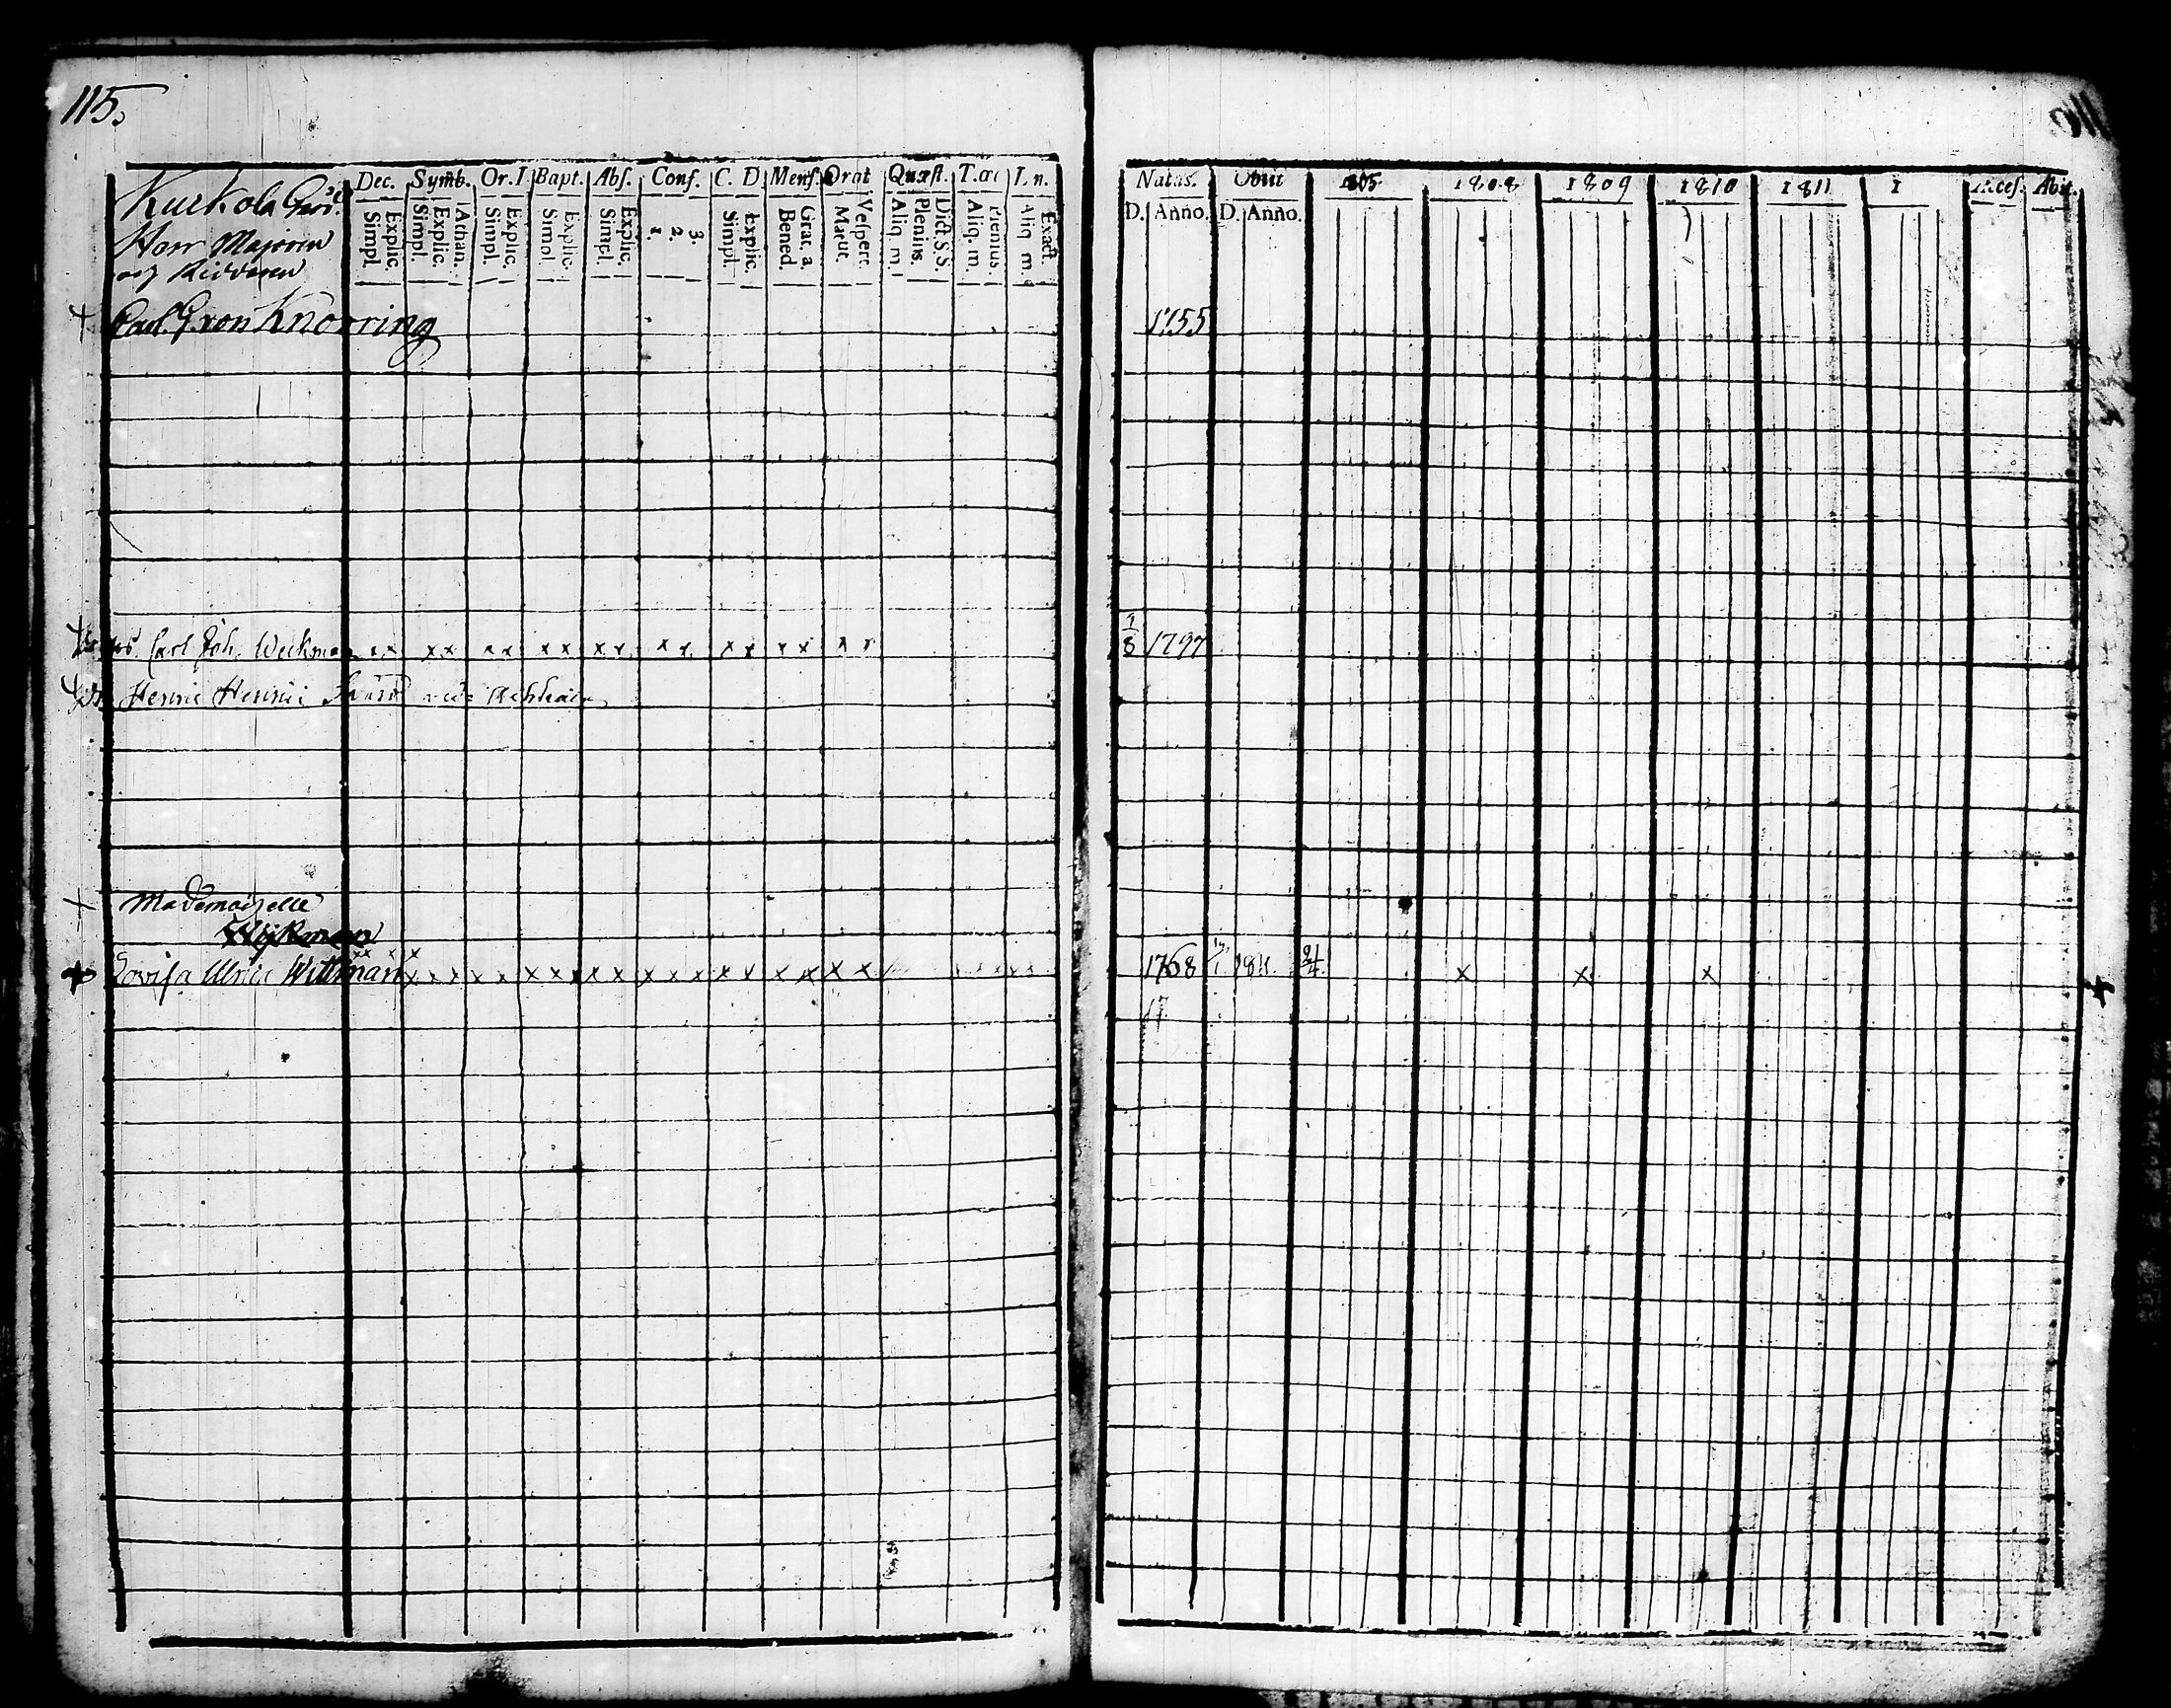 115.
Dec. Symb. Or. Bapt. Abs. Conf. C. D. Mens. Orat Quæst.
Simpl. Explic. Simpl. Explic. Athan. Simpl. Explic. Simpl. Explic. Simpl. Explic. 1. 2. 3. Simpl. Explic. Bened. Grat. a. Matut. Vespert. Aliq. m. Plenius. Dict. S. S. Aliq. m. Plenius. Aliq. m. Exact.
Herr Majoren
och Riddaren
Carl G. von Knorring
Carl Joh. Weckman x x x x x x x x x x x x x x x x x x
Henric Henric
Mademoiselle
Wijkman
Lovisa Ulrica Wittman x x x x x x x x x x x x x x x x x x x
Natus. Obiit 1805 1808 1809 1810 1811 1 Acces. Abit.
D. Anno. D. Anno.
1755
1/8 1797
1768 1811 x x x
17